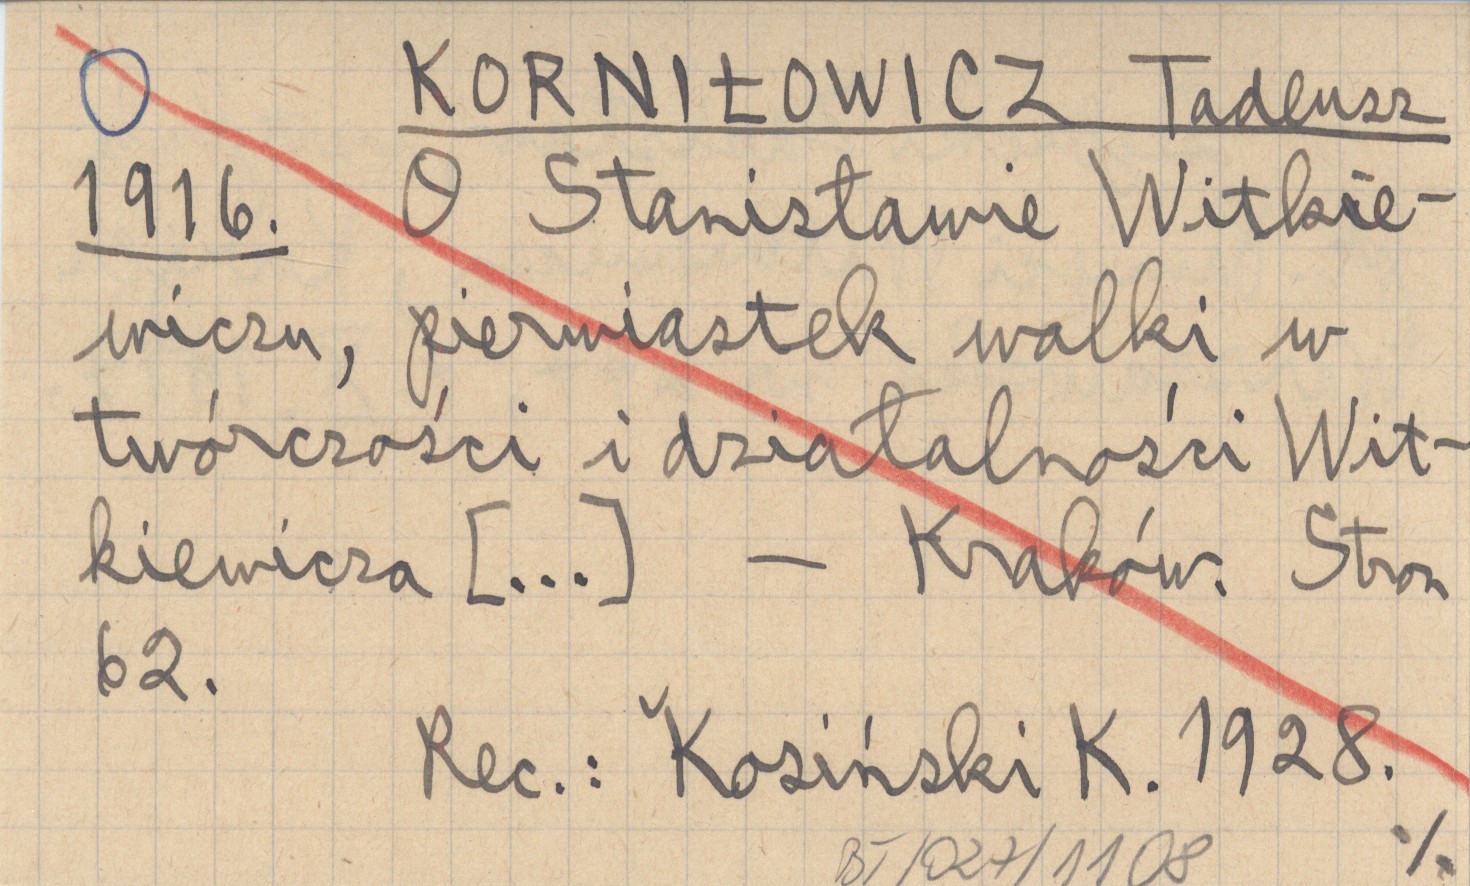 KORNIŁOWICZ Tadeusz
1916. O Stanisławie Witkie-
wiczu, pierwiastek walki w
twórczości i działalności Wit-
kiewicza [...] — Kraków. Stron
62.
Rec.: Kosiński K. 1928.
./.
BT/027/1108